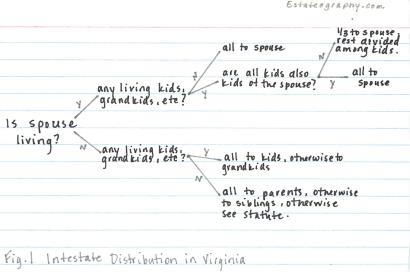 Estateography.com
1/3 to spouse,
rest divided
among kids.
all to spouse
N
Y
any living kids,
grandkids, etc?
Y
are all kids also
kids of the spouse?
Y
all to
spouse
Y
Is spouse
living?
N
any living kids,
grandkids, etc?
Y
all to kids, otherwise to
grandkids
N
all to parents, otherwise
to siblings, otherwise
see statute.
Fig. 1 Intestate Distribution in Virginia